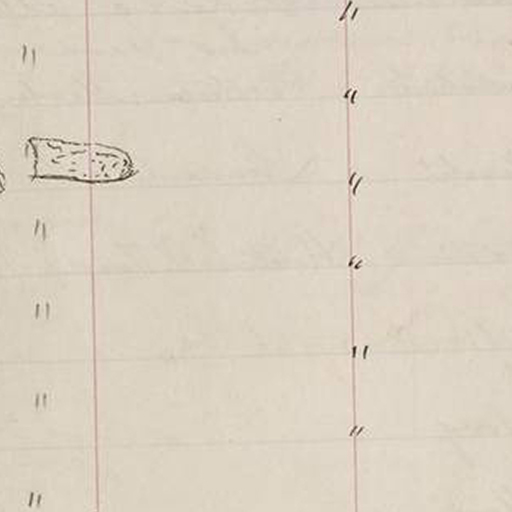 "
"
"
"
"
"
"
"
"
"
"